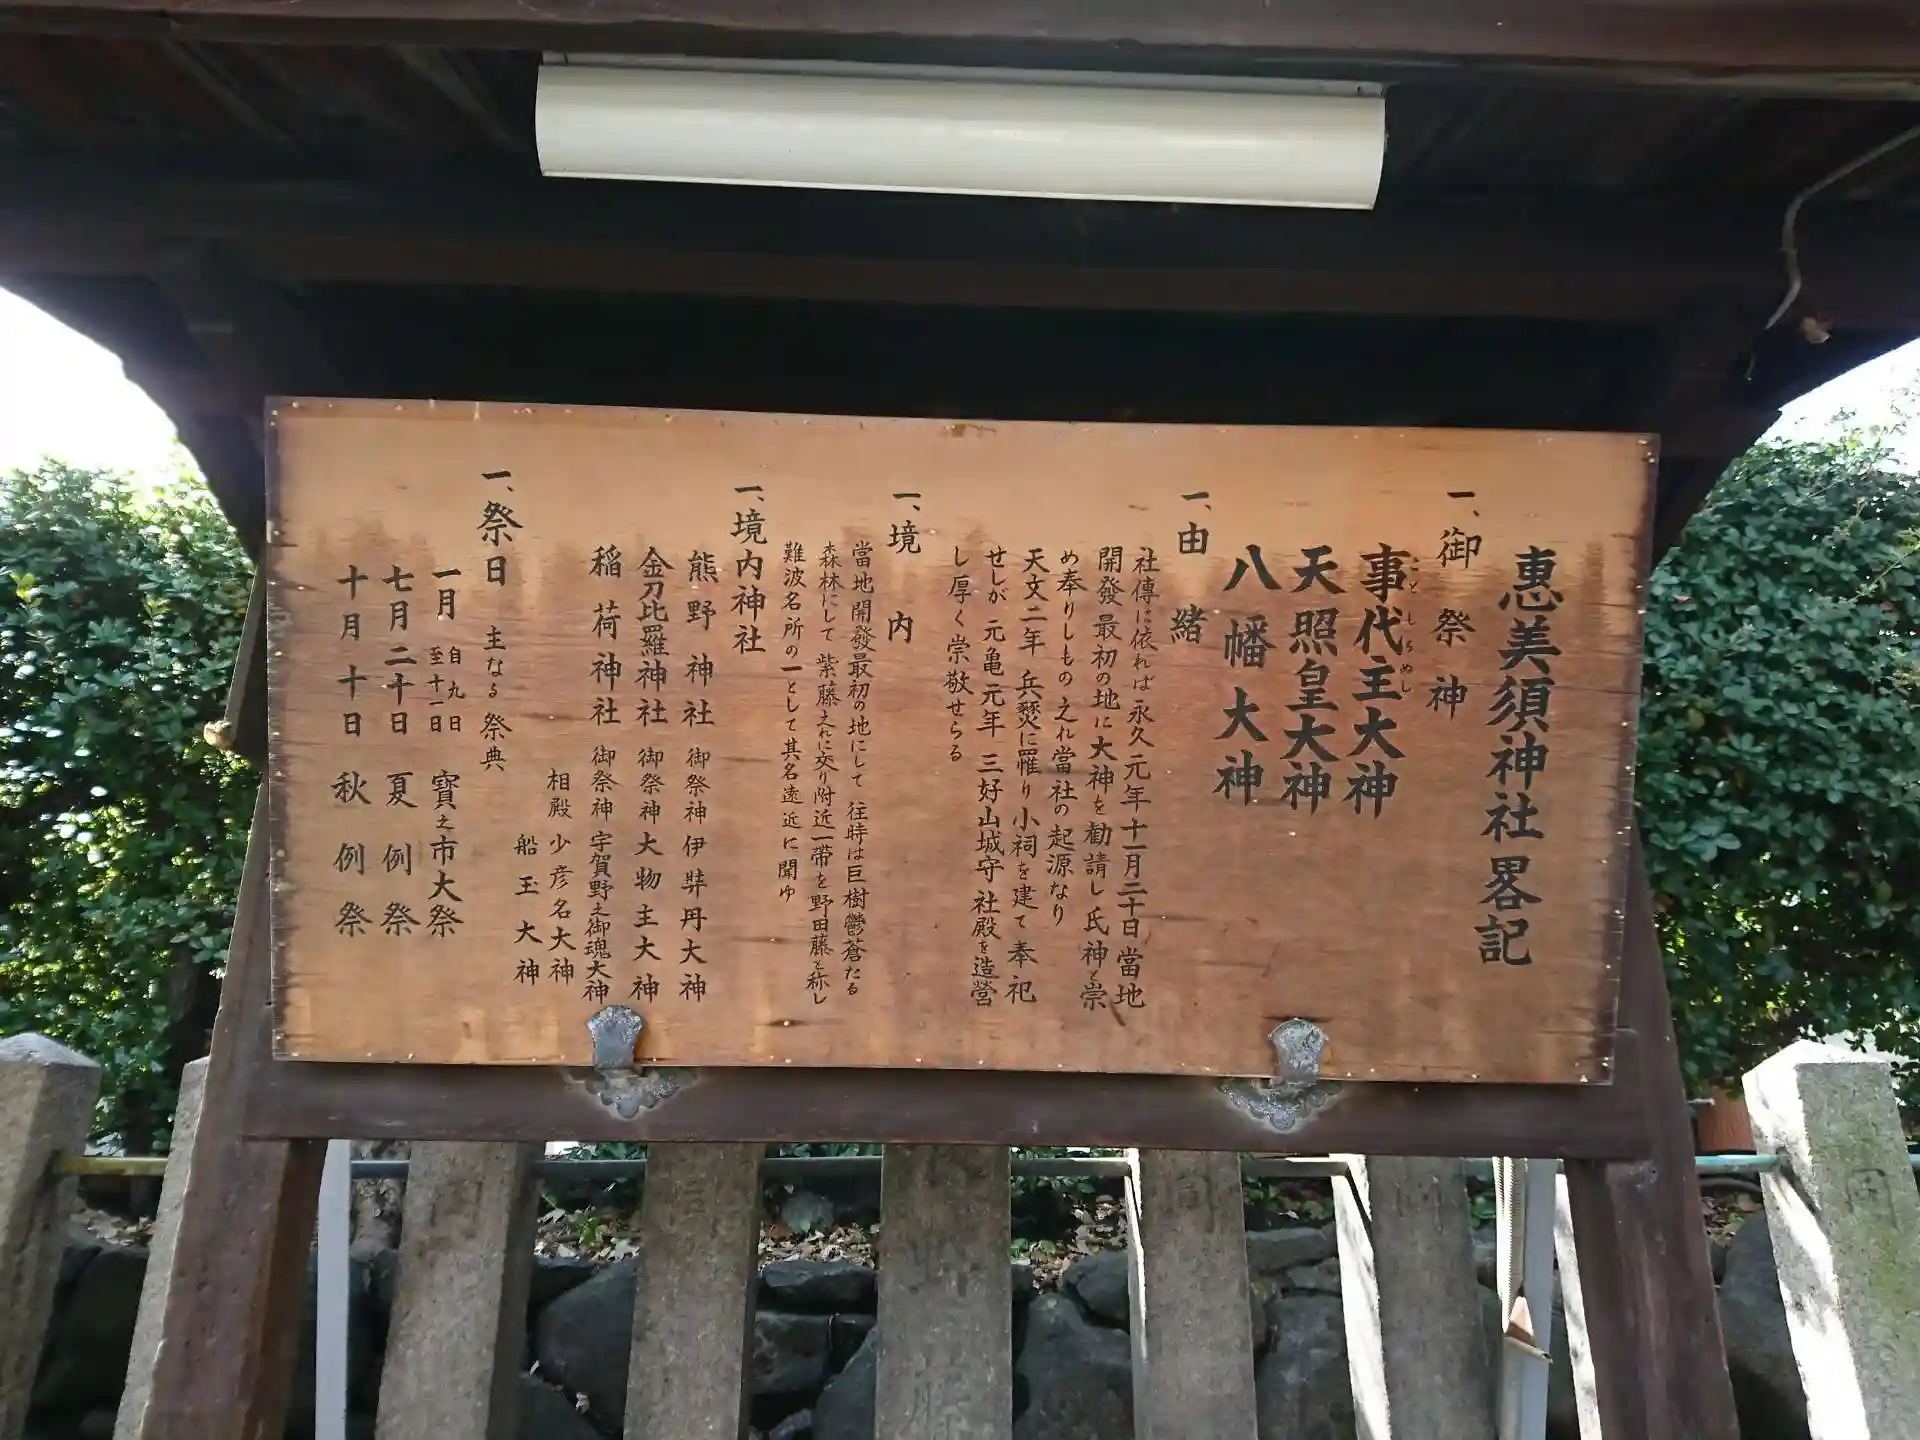 惠美須神社畧記
一、御祭神
事代主大神
ことしろぬし
天照皇大神
八幡大神
一、由緒
社傳に依れば永久元年十一月二十日當地
開發最初の地に大神を勧請し氏神と崇
め奉りしもの之れ當社の起源なり
天文二年兵燹に罹り小祠を建て奉祀
せしが元亀元年三好山城守社殿を造營
し厚く崇敬せらる
一、境内
當地開發最初の地にして往時は巨樹鬱蒼たる
森林にして紫藤之れに交り附近一帯を野田藤と称し
難波名所の一として其名遠近に聞ゆ
一、境内神社
熊野神社 御祭神 伊弉冉大神
金刀比羅神社 御祭神 大物主大神
稲荷神社 御祭神 宇賀野之御魂大神
相殿 少彦名大神
船玉大神
一、祭日 主なる祭典
一月 自九日 至十一日 寳之市大祭
七月二十日 夏例祭
十月十日 秋例祭